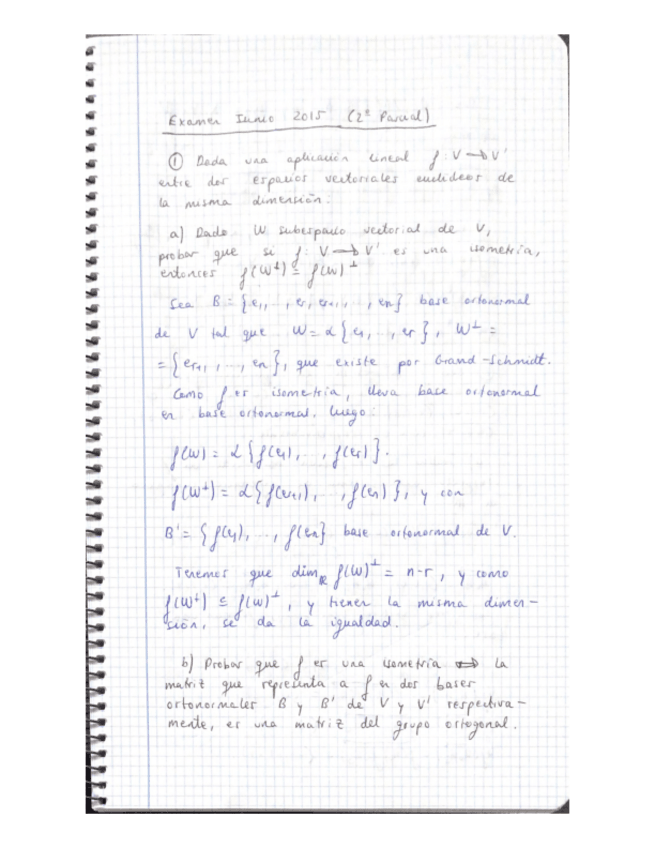 Examen Junio 2015 (2º Parcial)
① Dada una aplicación lineal f : V → V'
entre dos espacios vectoriales euclideos de
la misma dimensión.
a) Dado W subespacio vectorial de V,
probar que si f : V → V' es una isometría,
entonces f(W⊥) = f(W)⊥
Sea B = {e₁, .., er, er+1, .., en} base ortonormal
de V tal que W = L{e₁, .., er}, W⊥ =
= {er+1, .., en}, que existe por Grand-Schmidt.
Como f es isometría, lleva base ortonormal
en base ortonormal. Luego:
f(W) = L{f(e₁), .., f(er)}.
f(W⊥) = L{f(er+1), .., f(en)}, y con
B' = {f(e₁), .., f(en} base ortonormal de V.
Tenemos que dimℝ f(W)⊥ = n-r, y como
f(W⊥) ⊆ f(W)⊥, y tienen la misma dimen-
sión, se da la igualdad.
b) Probar que f es una isometría ⇔ la
matriz que representa a f en dos bases
ortonormales B y B' de V y V' respectiva-
mente, es una matriz del grupo ortogonal.